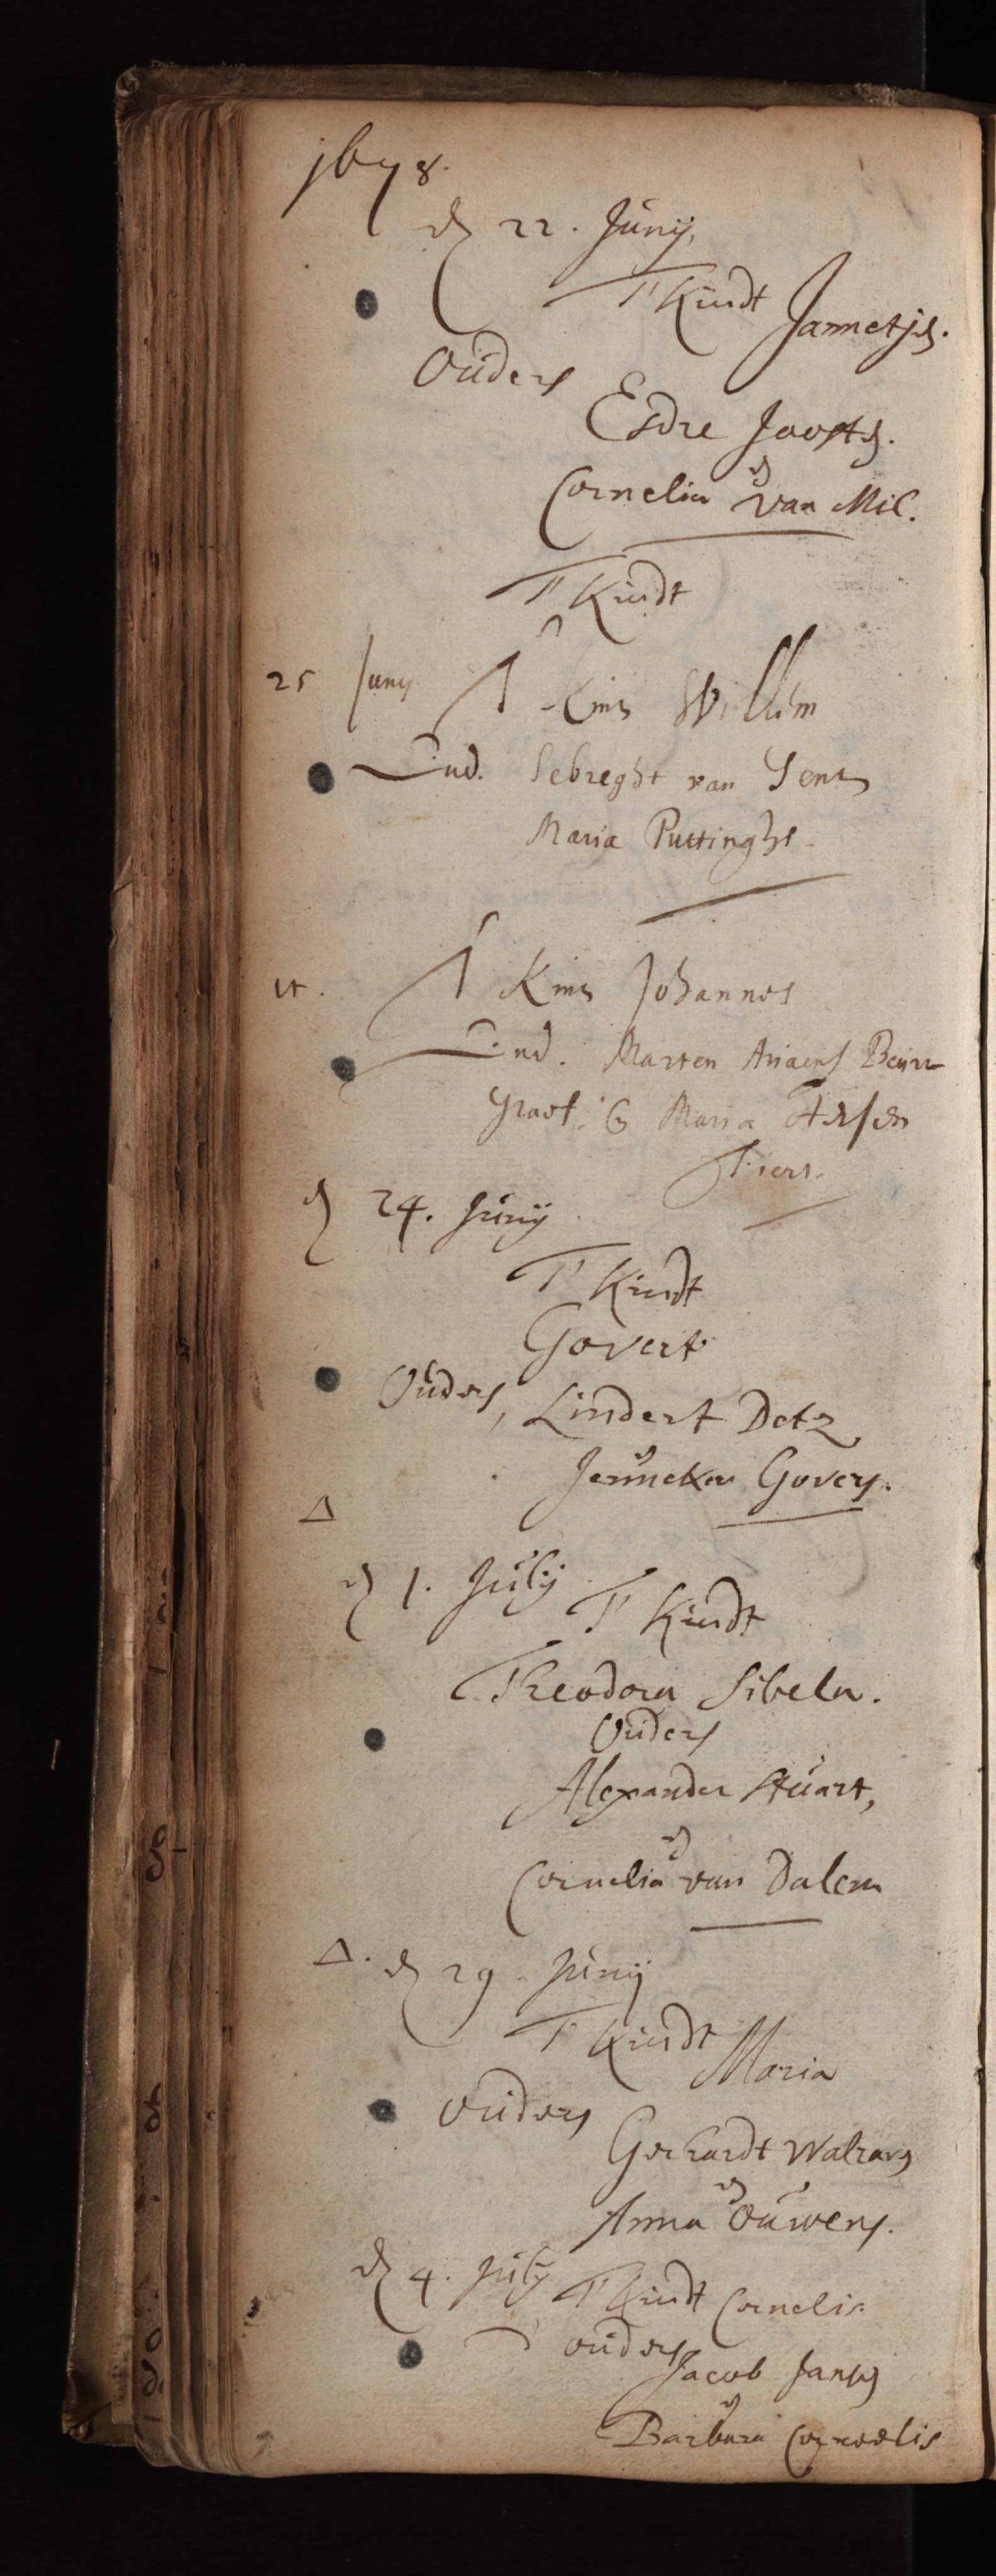 1678.
d 22. Junij,
T Kindt Jannetje.
Ouders
Esdre Jooste.
en
Cornelia van Mil.
T Kindt
25 Juny T Kint Willem
Oud. Sebreght van Sent
Maria Puttinghs
it. T Kint Johannes
Oud. Marten Ariaens Beuur
graef. & Maria Aersen
Piers.
d 24. Junij
T Kindt
Govert
Ouders, Lindert Detz
en
Jenneken Govers.
Δ
d 1. Julij T Kindt
Theodora Sibela.
Ouders
Alexander Stuart,
en
Cornelia van Dalem
Δ. d 29. Junij
T Kindt Maria
Ouders
Gerhardt Walravs
en
Anna Ouwens.
d 4. Julij T Kindt Cornelis
Ouders
Jacob Jansz
en
Barbara Cornelis